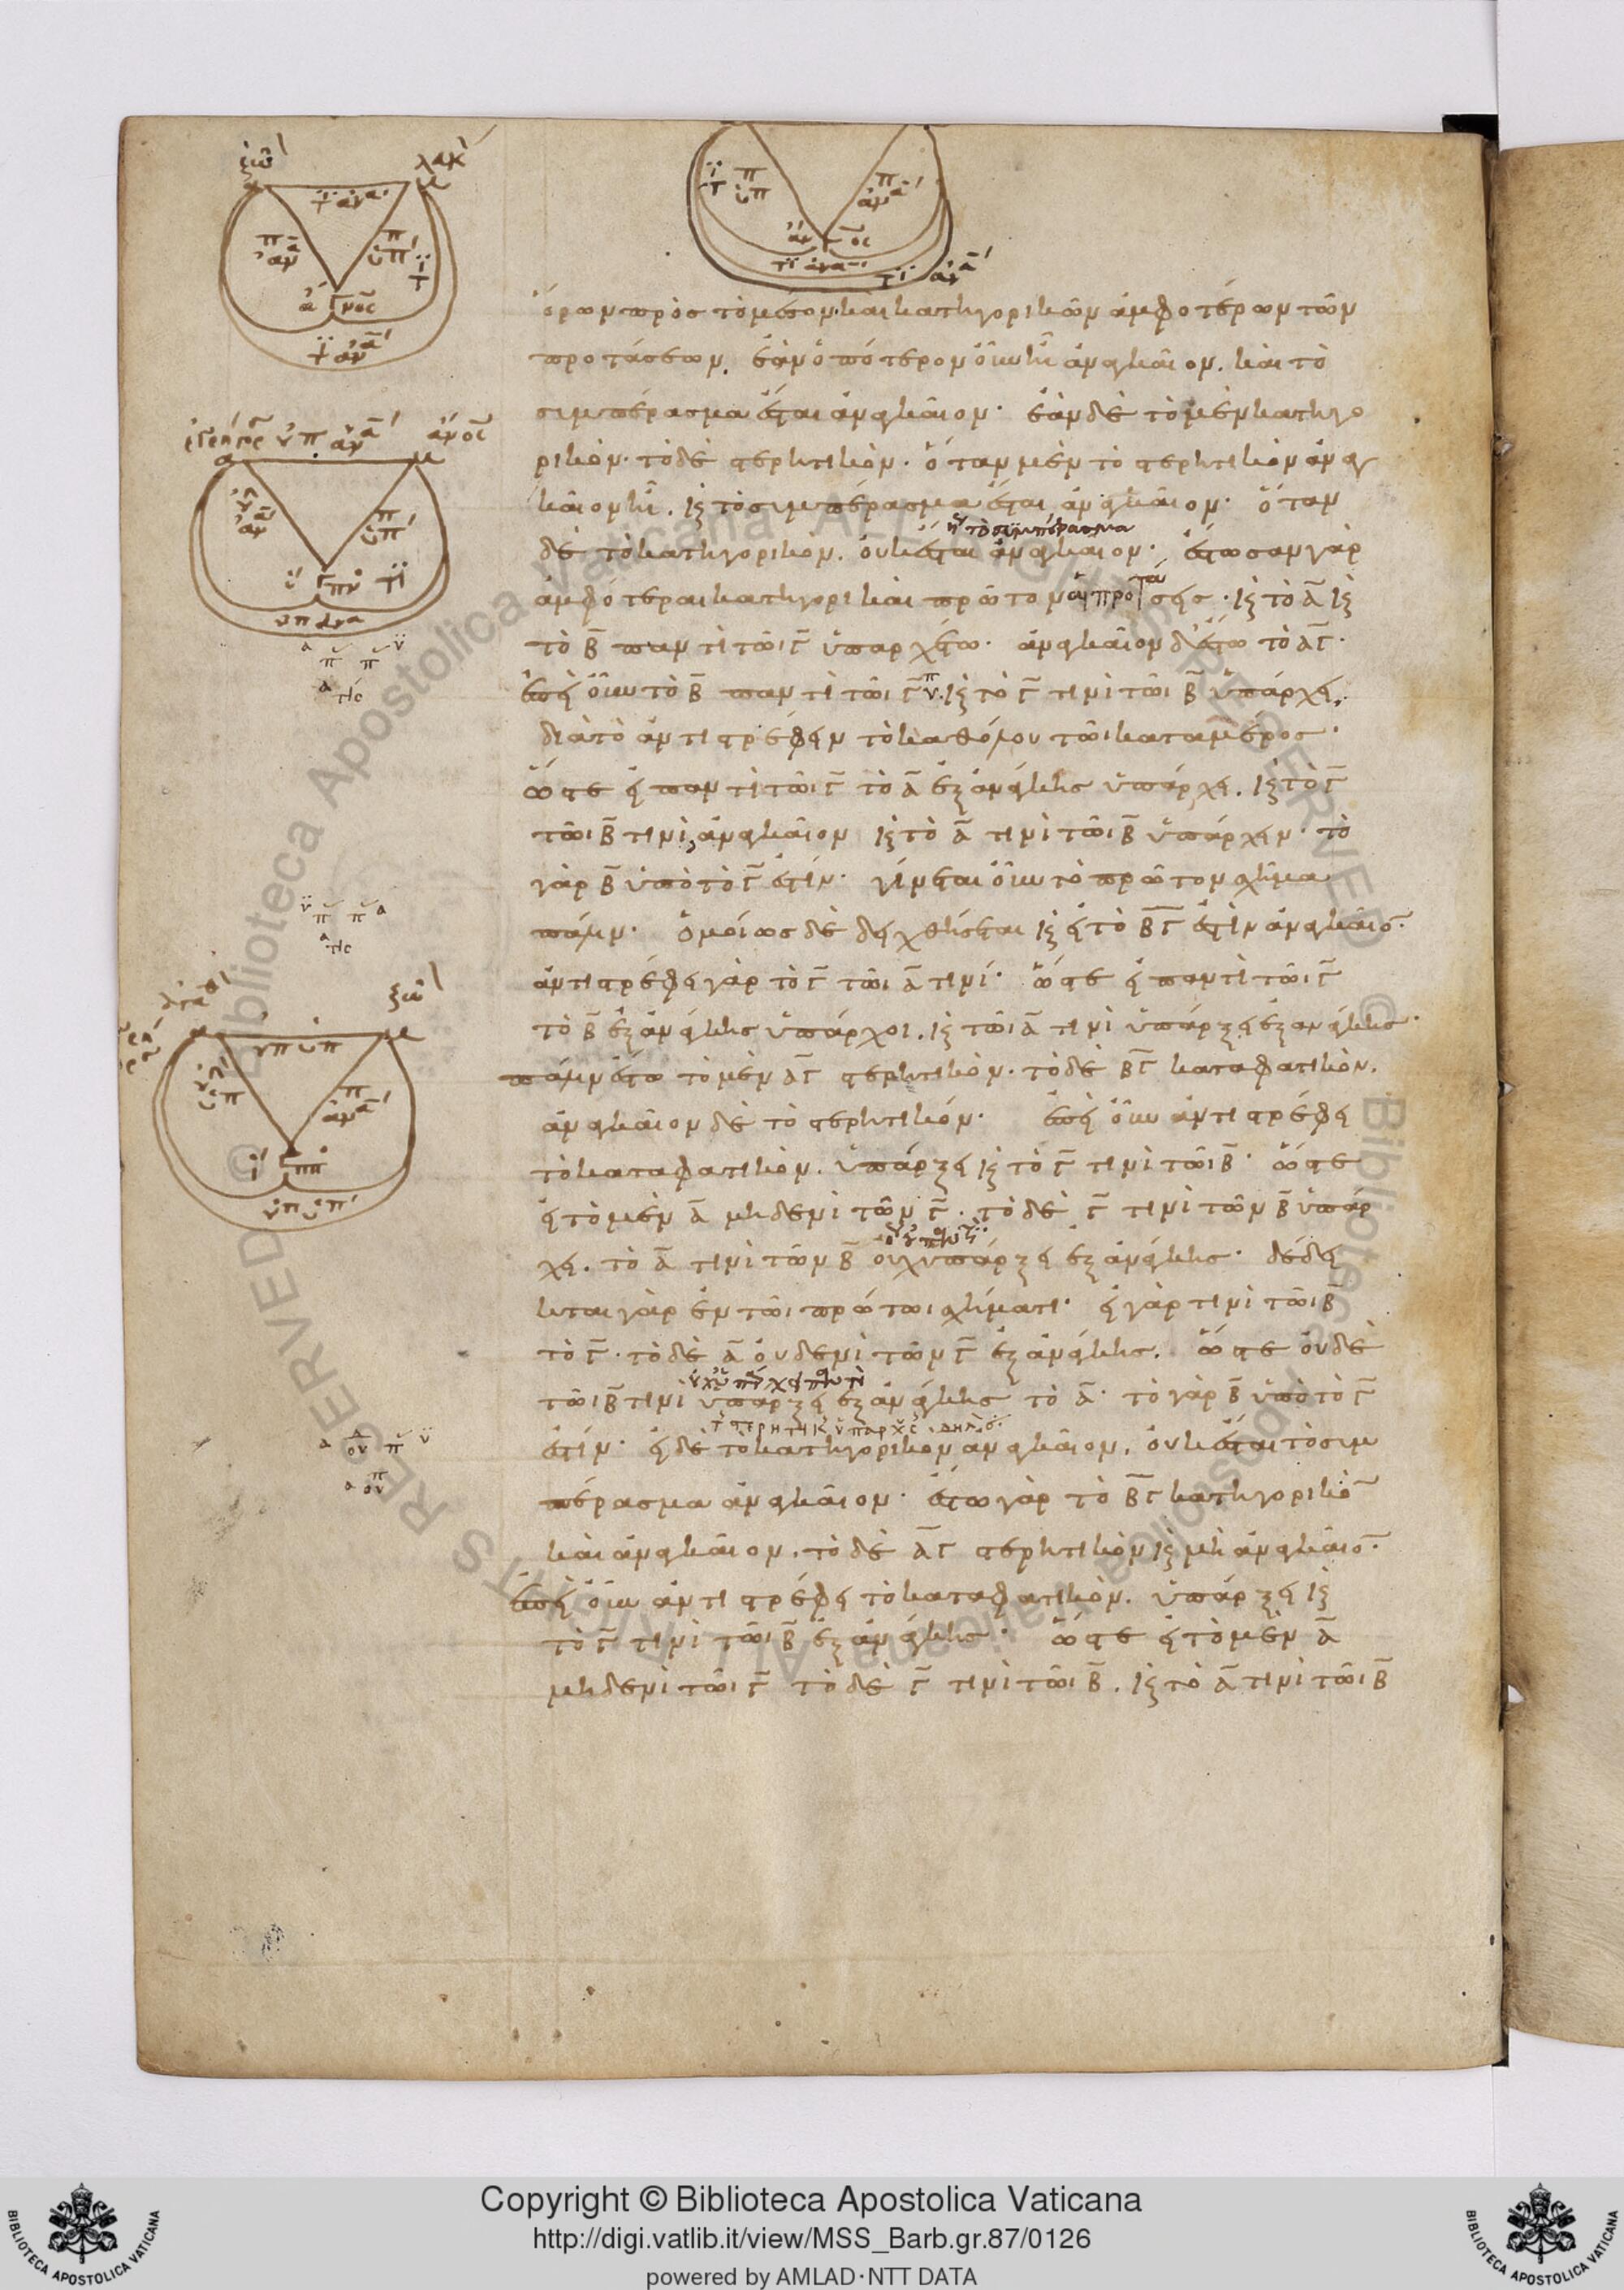 ὅρων πρὸς τὸ μέσον καὶ κατηγορικῶν ἀμφοτέρων τῶν
προτάσεων, ἐὰν ὁπότερον οὖν ἦ ἀναγκαῖον, καὶ τὸ
συμπέρασμα ἔσται ἀναγκαῖον· ἐὰν δὲ τὸ μὲν κατηγο
ρικὸν· τὸ δὲ στερητικὸν· ὅταν μὲν τὸ στερητικὸν ἀναγ
καῖον ἦ, κ τὸ συμπέρασμα ἔσται ἀναγκαῖον· ὅταν
ἢ τὸ συμπέρασμα
δὲ τὸ κατηγορικὸν, οὐκ ἔσται ἀναγκαῖον· ἔστωσαν γὰρ
ἀμφότεραι κατηγορικαὶ πρῶτον αἱ προτάσεις· κ τὸ Α κ
τὸ Β παντὶ τῶι Γ ὑπαρχέτω· ἀναγκαῖον δ' ἔστω τὸ ΑΓ·
ἐπεὶ οὖν τὸ Β παντὶ τῶι Γ ὑπ. κ τὸ Γ τινὶ τῶι Β ὑπάρχει,
διὰ τὸ ἀντιστρέφειν τὸ καθόλου τῶι κατὰ μέρος·
ὥστε εἰ παντὶ τῶι Γ τὸ Α ἐξ ἀνάγκης ὑπάρχει, κ τὸ Γ
τῶι Β τινὶ, ἀναγκαῖον κ τὸ Α τινὶ τῶι Β ὑπάρχειν· τὸ
γὰρ Β ὑπὸ τὸ Γ ἐστίν· γίνεται οὖν τὸ πρῶτον σχῆμα
πάλιν· ὁμοίως δὲ δειχθήσεται κ εἰ τὸ ΒΓ ἐστὶν ἀναγκαῖο·
ἀντιστρέφει γὰρ τὸ Γ τῶι Α τινί· ὥστε εἰ παντὶ τῶι Γ
τὸ Β ἐξ ἀνάγκης ὑπάρχοι, κ τῶι Α τινὶ ὑπάρξει ἐξ ἀνάγκης·
πάλιν ἔστω τὸ μὲν ΑΓ στερητικὸν· τὸ δὲ ΒΓ καταφατικὸν,
ἀναγκαῖον δὲ τὸ στερητικόν· ἐπεὶ οὖν ἀντιστρέφει
τὸ καταφατικὸν, ὑπάρξει κ τὸ Γ τινὶ τῶι Β· ὥστε
εἰ τὸ μὲν Α μηδενὶ τῶν Γ· τὸ δὲ Γ τινὶ τῶν Β ὑπάρ
χει, τὸ Α τινὶ τῶν Β οὐχ ὑπάρξει ἐξ ἀνάγκης· δέδει
κται γὰρ ἐν τῶι πρώτωι σχήματι· εἰ γὰρ τινὶ τῶι Β
τὸ Γ· τὸ δὲ Α οὐδενὶ τῶν Γ ἐξ ἀνάγκης, ὥστε οὐδὲ
τῶι Β τινὶ ὑπάρξει ἐξ ἀνάγκης τὸ Α· τὸ γὰρ Β ὑπὸ τὸ Γ
ἐστίν· εἰ δὲ τὸ κατηγορικὸν ἀναγκαῖον, οὐκ ἔσται τὸ συμ
πέρασμα ἀναγκαῖον· ἔστω γὰρ τὸ ΒΓ κατηγορικὸ
καὶ ἀναγκαῖον, τὸ δὲ ΑΓ στερητικὸν κ μὴ ἀναγκαῖο·
ἐπεὶ οὖν ἀντιστρέφει τὸ καταφατικὸν, ὑπάρξει κ
τὸ Γ τινὶ τῶι Β ἐξ ἀνάγκης· ὥστε εἰ τὸ μὲν Α
μηδενὶ τῶι Γ τὸ δὲ Γ τινὶ τῶι Β, κ τὸ Α τινὶ τῶι Β
Copyright © Biblioteca Apostolica Vaticana
http://digi.vatlib.it/view/MSS_Barb.gr.87/0126
powered by AMLAD·NTT DATA
BIBLIOTECA APOSTOLICA VATICANA
BIBLIOTECA APOSTOLICA VATICANA